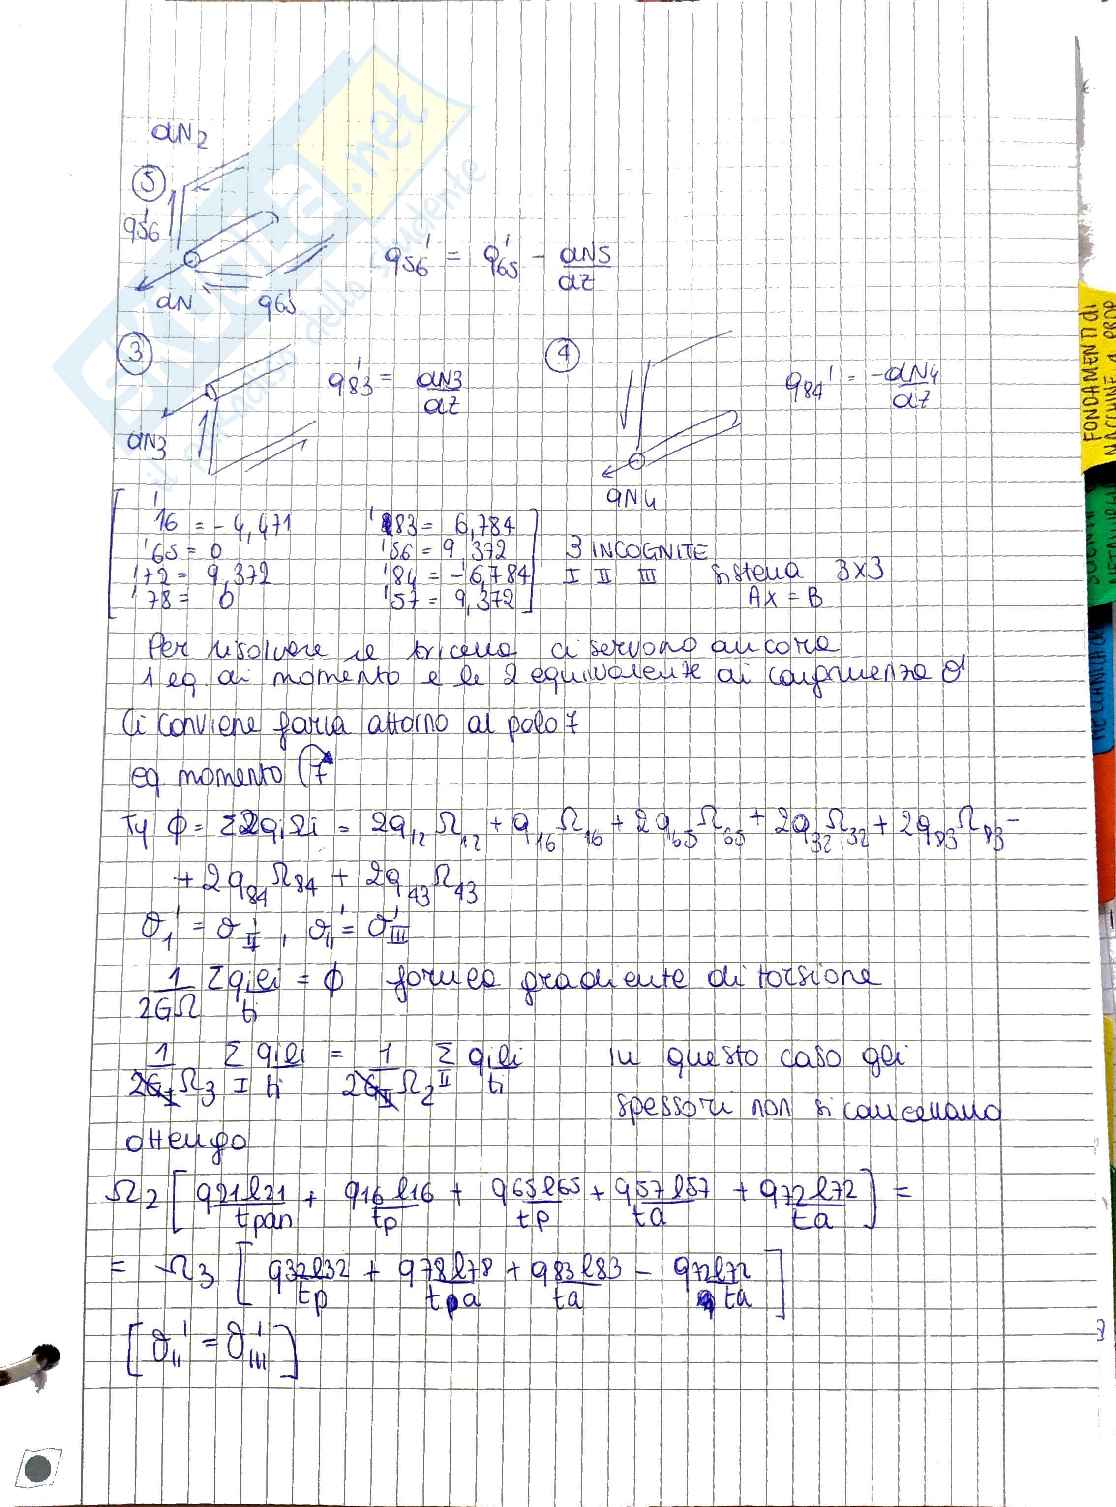 dN2
5
q'56
q'56 = q'65 - dN5/dz
dN q'65
3 4
q'83 = dN3/dz q'84 = -dN4/dz
dN3
dN4
'16 = -4,471 '83 = 6,784
'65 = 0 '56 = 9,372 3 INCOGNITE
'72 = 9,372 '84 = -6,784 I II III sistema 3x3
'78 = 0 '57 = 9,372 Ax = B
Per risolvere il ci servono ancora
1 eq di momento e le 2 equivalenze di congruenza θ'
Ci conviene farla attorno al polo 7
eq momento 7
Ty ϕ = Σ2qiΩi = 2q12Ω12 + q16Ω16 + 2q65Ω65 + 2q32Ω32 + 2q83Ω83 -
+ 2q84Ω84 + 2q43Ω43
θ'I = θ'II , θ'II = θ'III
1/2GΩ Σ qili/ti = ϕ formula gradiente di torsione
1/2GIΩ3 ΣI qili/ti = 1/2GIIΩ2 ΣII qili/ti In questo caso gli
spessori non si cancellano
ottengo
Ω2 [q21l21/tpan + q16l16/tp + q65l65/tp + q57l57/ta + q72l72/ta] =
= Ω3 [q32l32/tp + q78l78/tpa + q83l83/ta - q72l72/ta]
[θ'II = θ'III]
SKUOLA.net
il paradiso dello studente
FONDAMENTI DI
MACCHINE A